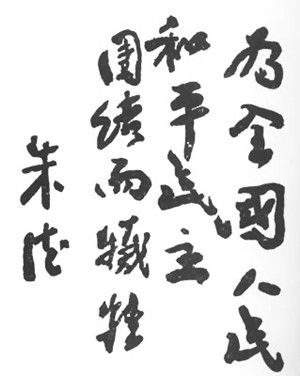 为全國人民
和平民主
團结而犧牲
朱德